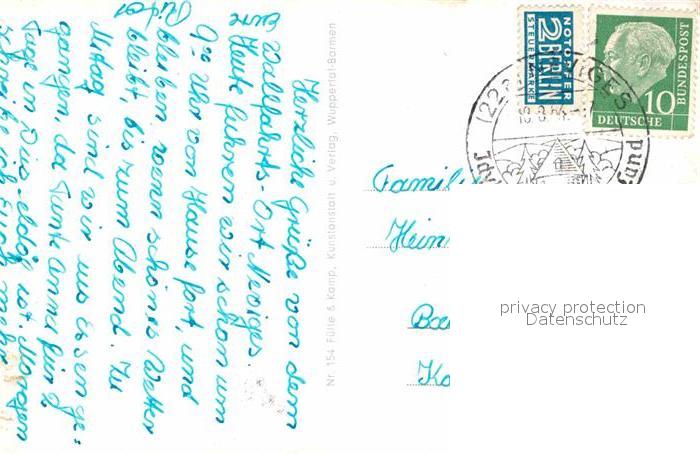 Herzliche Grüße von dem
Wallfahrts-Ort Neviges.
Heute fuhren wir schon um
9 00 Uhr von Hause fort, und
bleiben wenn schönes Wetter
bleibt, bis zum Abend. Zu
Mittag sind wir uns Essen ge-
gangen, da Tante Anna für 2
Tage in Düsseldorf ist. Morgen
schreibe ich Euch mehr
Eure
Nr. 154 Fülle & Kamp, Kunstanstalt u. Verlag, Wuppertal-Barmen
NOTOPFER
2 BERLIN
STEUERMARKE
DEUTSCHE
BUNDESPOST
10
(22a) NEVIGES
Famil
Hein
privacy protection
Datenschutz
Ko